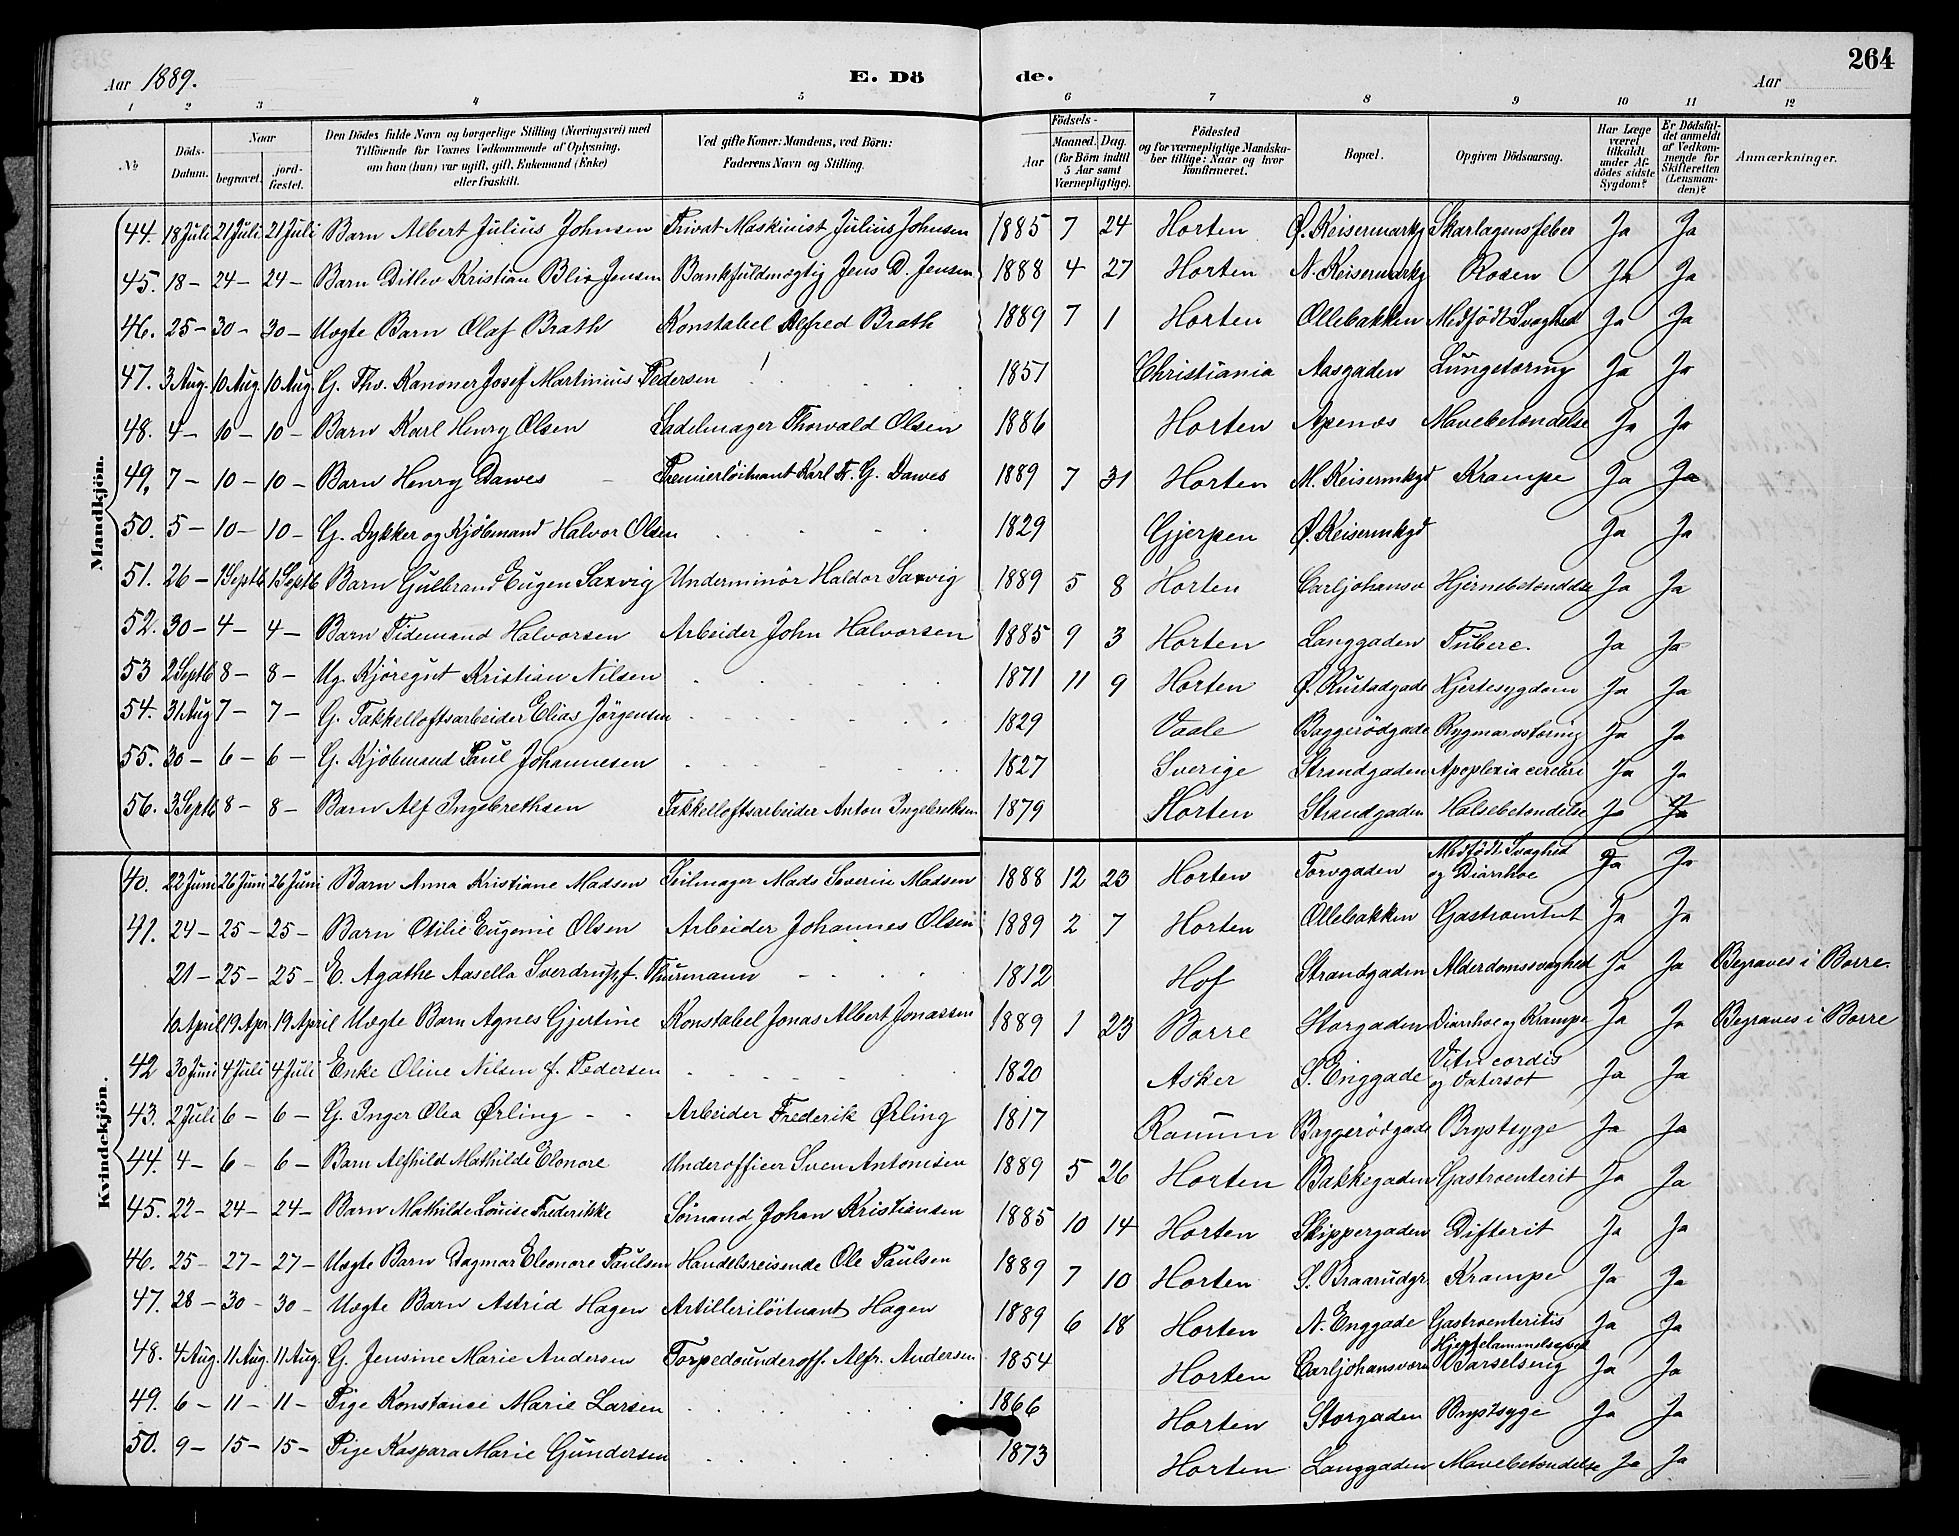 Aar 1889. E. Dö de. Aar 264
1 2 3 4 5 6 7 8 9 10 11 12
№ Döds-Datum. Naar begravet. jordfæstet. Den Dödes fulde Navn og borgerlige Stilling (Næringsvei) med Tilföiende for Voxnes Vedkommende af Oplysning, om han (hun) var ugift, gift, Enkemand (Enke) eller fraskilt. Ved gifte Koner: Mandens, ved Börn: Faderens Navn og Stilling. Födsels- Aar Maaned. Dag. (for Börn indtil 5 Aar samt Værnepligtige). Födested og for værnepligtige Mandskaber tillige: Naar og hvor konfirmeret. Bopæl. Opgiven Dödsaarsag. Har Læge været tilkaldt under Afdödes sidste Sygdom? Er Dödsfaldet anmeldt af Vedkommende for Skifteretten (Lensmanden)? Anmærkninger.
Mandkjön.
44. 18 Juli 21 Juli 21 Juli Barn Albert Julius Johnsen Privat Maskinist Julius Johnsen 1885 7 24 Horten Ø. Keisermarkg Skarlagensfeber Ja Ja
45. 18 – 24 – 24 – Barn Ditlev Kristian Blix Jensen Bankfuldmægtig Jens D. Jensen 1888 4 27 Horten N. Keisermarkg Rosen Ja Ja
46. 25 – 30 – 30 – Uægte Barn Olaf Brath Konstabel Alfred Brath 1889 7 1 Horten Ollebakken Medfödt Svaghed Ja Ja
47. 3 Aug. 10 Aug. 10 Aug. G. Ths. Kanoner Josef Martinius Pedersen 1851 Christiania Aasgaden Lungetæring Ja Ja
48. 4 – 10 – 10 – Barn Karl Henry Olsen Sadelmager Thorvald Olsen 1886 Horten Apenæs Mavebetændelse Ja Ja
49. 7 – 10 – 10 – Barn Henry Dawes Premierlöitnant Karl Fr. G. Dawes 1889 7 31 Horten M. Keisermkgd Krampe Ja Ja
50. 5 – 10 – 10 – G. Dykker og Kjöbmand Halvor Olsen 1829 Gjerpen Ø. Keisermkgd Ja Ja
51. 26 – 1 Septb 1 Septb Barn Gulbrand Eugen Saxvig Underminör Haldor Saxvig 1889 5 8 Horten Carljohansv Hjernebetændelse Ja Ja
52. 30 – 4 – 4 – Barn Tidemand Halvorsen Arbeider John Halvorsen 1885 9 3 Horten Langgaden Tuberc. Ja Ja
53 2 Septb 8 – 8 – Ug. Kjöregut Kristian Nilsen 1871 11 9 Horten Ø. Rustadgade Hjertesygdom Ja Ja
54. 31 Aug 7 – 7 – G. Takkelloftsarbeider Elias Jörgensen 1829 Vaale Baggerödgade Rygmarvstæring Ja Ja
55. 30 – 6 – 6 – G. Kjöbmand Paul Johannesen 1827 Sverige Strandgaden Apoplexia cerebri Ja Ja
56. 3 Septb 8 – 8 – Barn Alf Ingebrethsen Takkelloftsarbeider Anton Ingebrethsen 1879 Horten Strandgaden Halsebetændelse Ja Ja
Kvindekjön.
40. 22 Juni 26 Juni 26 Juni Barn Anna Kristiane Madsen Seilmager Mads Severin Madsen 1888 12 23 Horten Torvgaden Medfödt Svaghed og Diarrhoe Ja Ja
41. 24 – 25 – 25 – Barn Otilie Eugenie Olsen Arbeider Johannes Olsen 1889 2 7 Horten Ollebakken Gastroenterit Ja Ja
21 – 25 – 25 – E. Agathe Aasella Sverdrup f. Thurmann 1812 Hof Strandgaden Alderdomssvaghed Ja Ja Begraves i Borre.
16 April 19 Apr. 19 April Uægte Barn Agnes Gjertine Konstabel Jonas Albert Jonassen 1889 1 23 Borre Storgaden Diarrhoe og Krampe Ja Ja Begraves i Borre
42 30 Juni 4 Juli 4 Juli Enke Oline Nilsen f. Pedersen 1820 Asker S. Enggade Vitii cordis og Vatersot Ja Ja
43. 2 Juli 6 – 6 – G. Inger Olea Ørling Arbeider Frederik Ørling 1817 Baggerödgade Brystsyge Ja Ja
44. 4 – 6 – 6 – Barn Alfhild Mathilde Elonore Underofficer Sven Antonisen 1889 5 26 Horten Bakkegaden Gastroenterit Ja Ja
45. 22 – 24 – 24 – Barn Mathilde Louise Frederikke Sömand Johan Kristiansen 1885 10 14 Horten Skippergaden Difterit Ja Ja
46. 25 – 27 – 27 – Uægte Barn Dagmar Eleonore Paulsen Handelsreisende Ole Paulsen 1889 7 10 Horten S. Braarudgr. Krampe Ja Ja
47. 28 – 30 – 30 – Uægte Barn Astrid Hagen Artillerilöitnant Hagen 1889 6 18 Horten N. Enggade Gastroenteritis Ja Ja
48. 4 Aug. 11 Aug. 11 Aug. G. Jensine Marie Andersen Torpedounderoff. Alfr. Andersen 1854 Horten Carljohansværn Barselseng Ja Ja
49. 6 – 11 – 11 – Pige Konstance Marie Larsen 1866 Horten Storgaden Brystsyge Ja Ja
50. 9 – 15 – 15 – Pige Kaspara Marie Gundersen 1873 Horten Langgaden Mavebetændelse Ja Ja